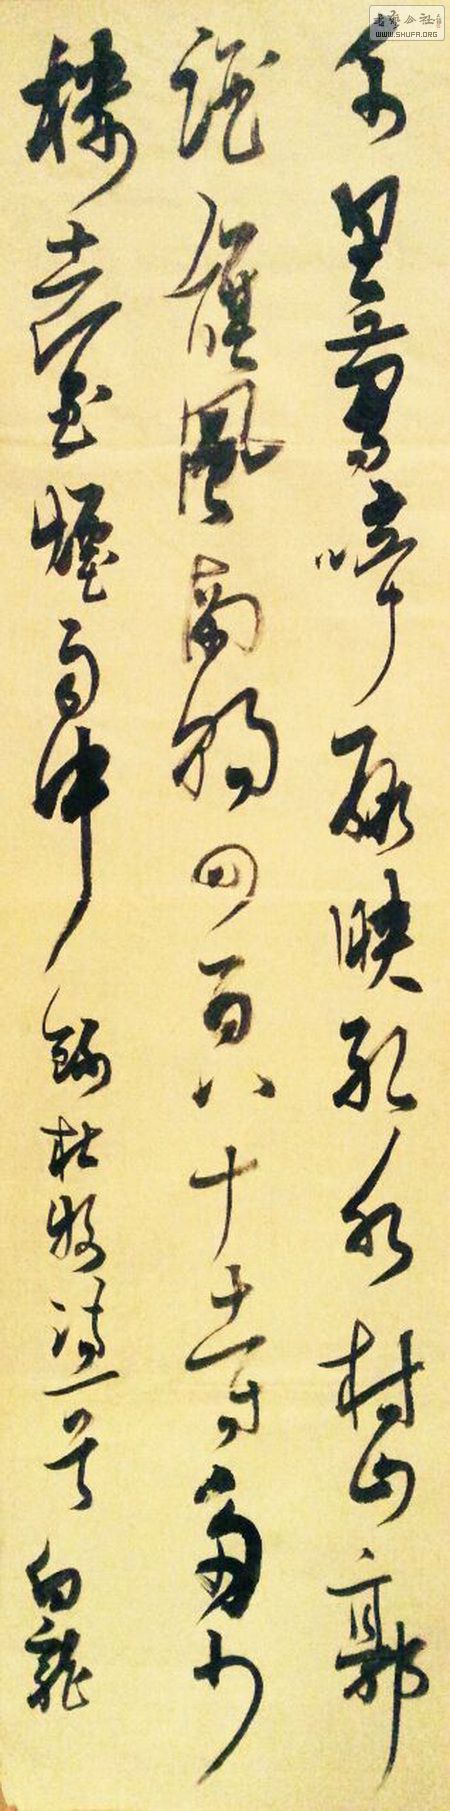 千里鶯啼綠映紅水村山郭
酒旗風南朝四百八十寺多少
樓臺煙雨中 錄杜牧詩一首 白龍
書藝公社
WWW.SHUFA.ORG